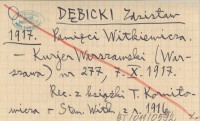 DĘBICKI Zdzisław
1917. Pamięci Witkiewicza.
– Kurjer Warszawski (War-
szawa) nr 277, 7. X. 1917.
Rec. z książki T. Kointo-
wicza – Stan. Witk. z r. 1916